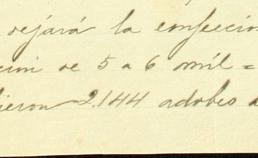 dejará la confección
cion de 5 a 6 mil =
dieron 2.144 adobes a